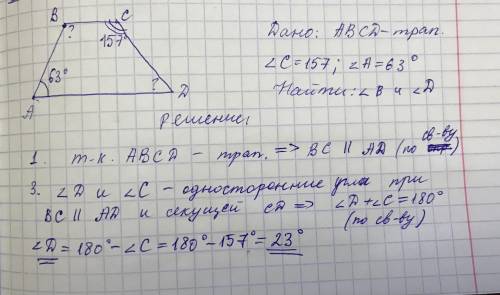 B ? C
157°
63° ?
A D
Дано: ABCD – трап.
∠C = 157; ∠A = 63°
Найти: ∠B и ∠D
Решение:
1. т.к. ABCD – трап. => BC || AD (по св-ву)
3. ∠D и ∠C – односторонние углы при
BC || AD и секущей CD => ∠D + ∠C = 180°
(по св-ву)
∠D = 180° – ∠C = 180° – 157° = 23°